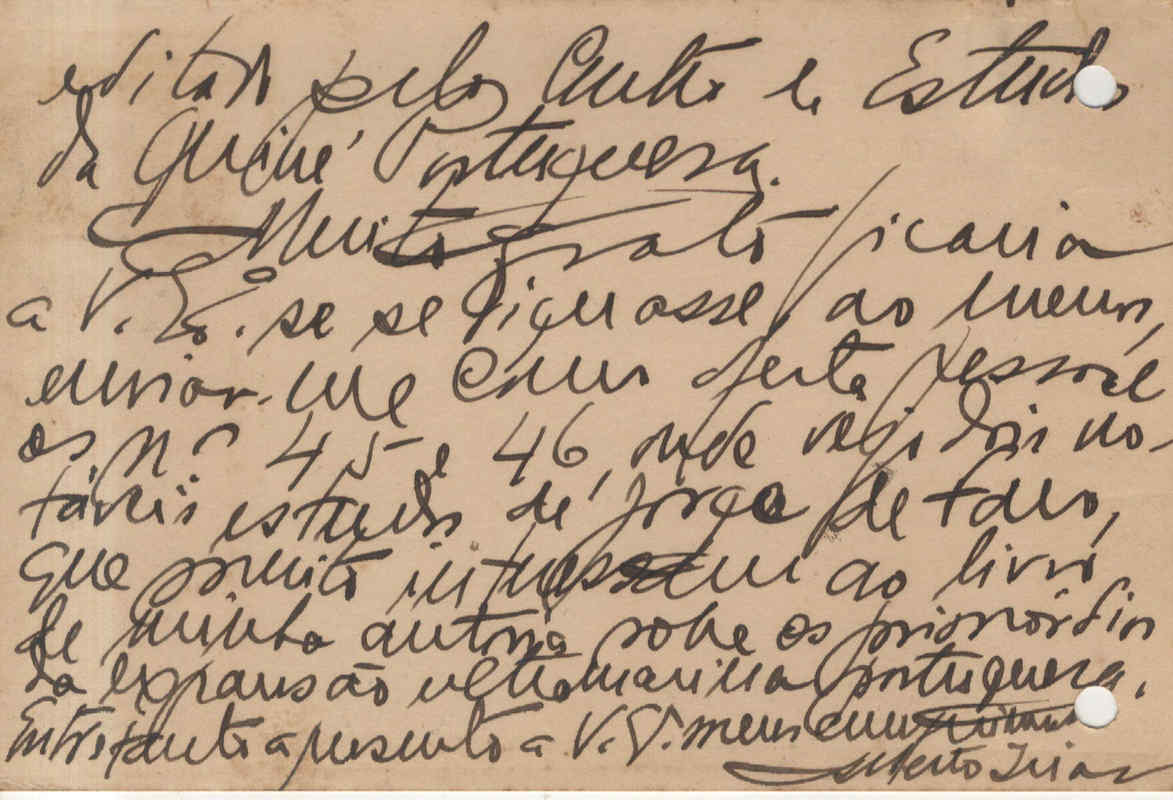 editado pelo Centro de Estudos
da Guiné Portuguesa.
Muito grato ficaria
a V. Exª. se se dignasse, ao menos,
enviar-me como oferta pessoal
os nº 45 e 46, onde vejo dois no-
táveis estudos de Jorge de Faro,
que muito interessam ao livro
de minha autoria sobre os primórdios
da expansão ultramarina portuguesa.
Entretanto apresento a V. Exª. meus cumprimentos
Alberto Iria